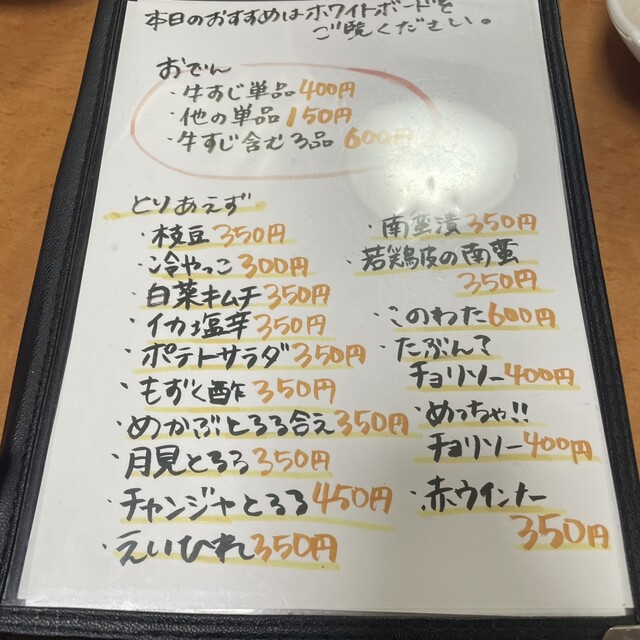 本日のおすすめはホワイトボードを
ご覧ください。
おでん
・牛すじ単品400円
・他の単品150円
・牛すじ含む3品600円
とりあえず
・枝豆350円
・冷やっこ300円
・白菜キムチ350円
・イカ塩辛350円
・ポテトサラダ350円
・もずく酢350円
・めかぶとろろ合え350円
・月見とろろ350円
・チャンジャとろろ450円
・えいひれ350円
・南蛮漬350円
・若鶏皮の南蛮
350円
・このわた600円
・たぶんて
チョリソー400円
・めっちゃ!!
チョリソー400円
・赤ウインナー
350円